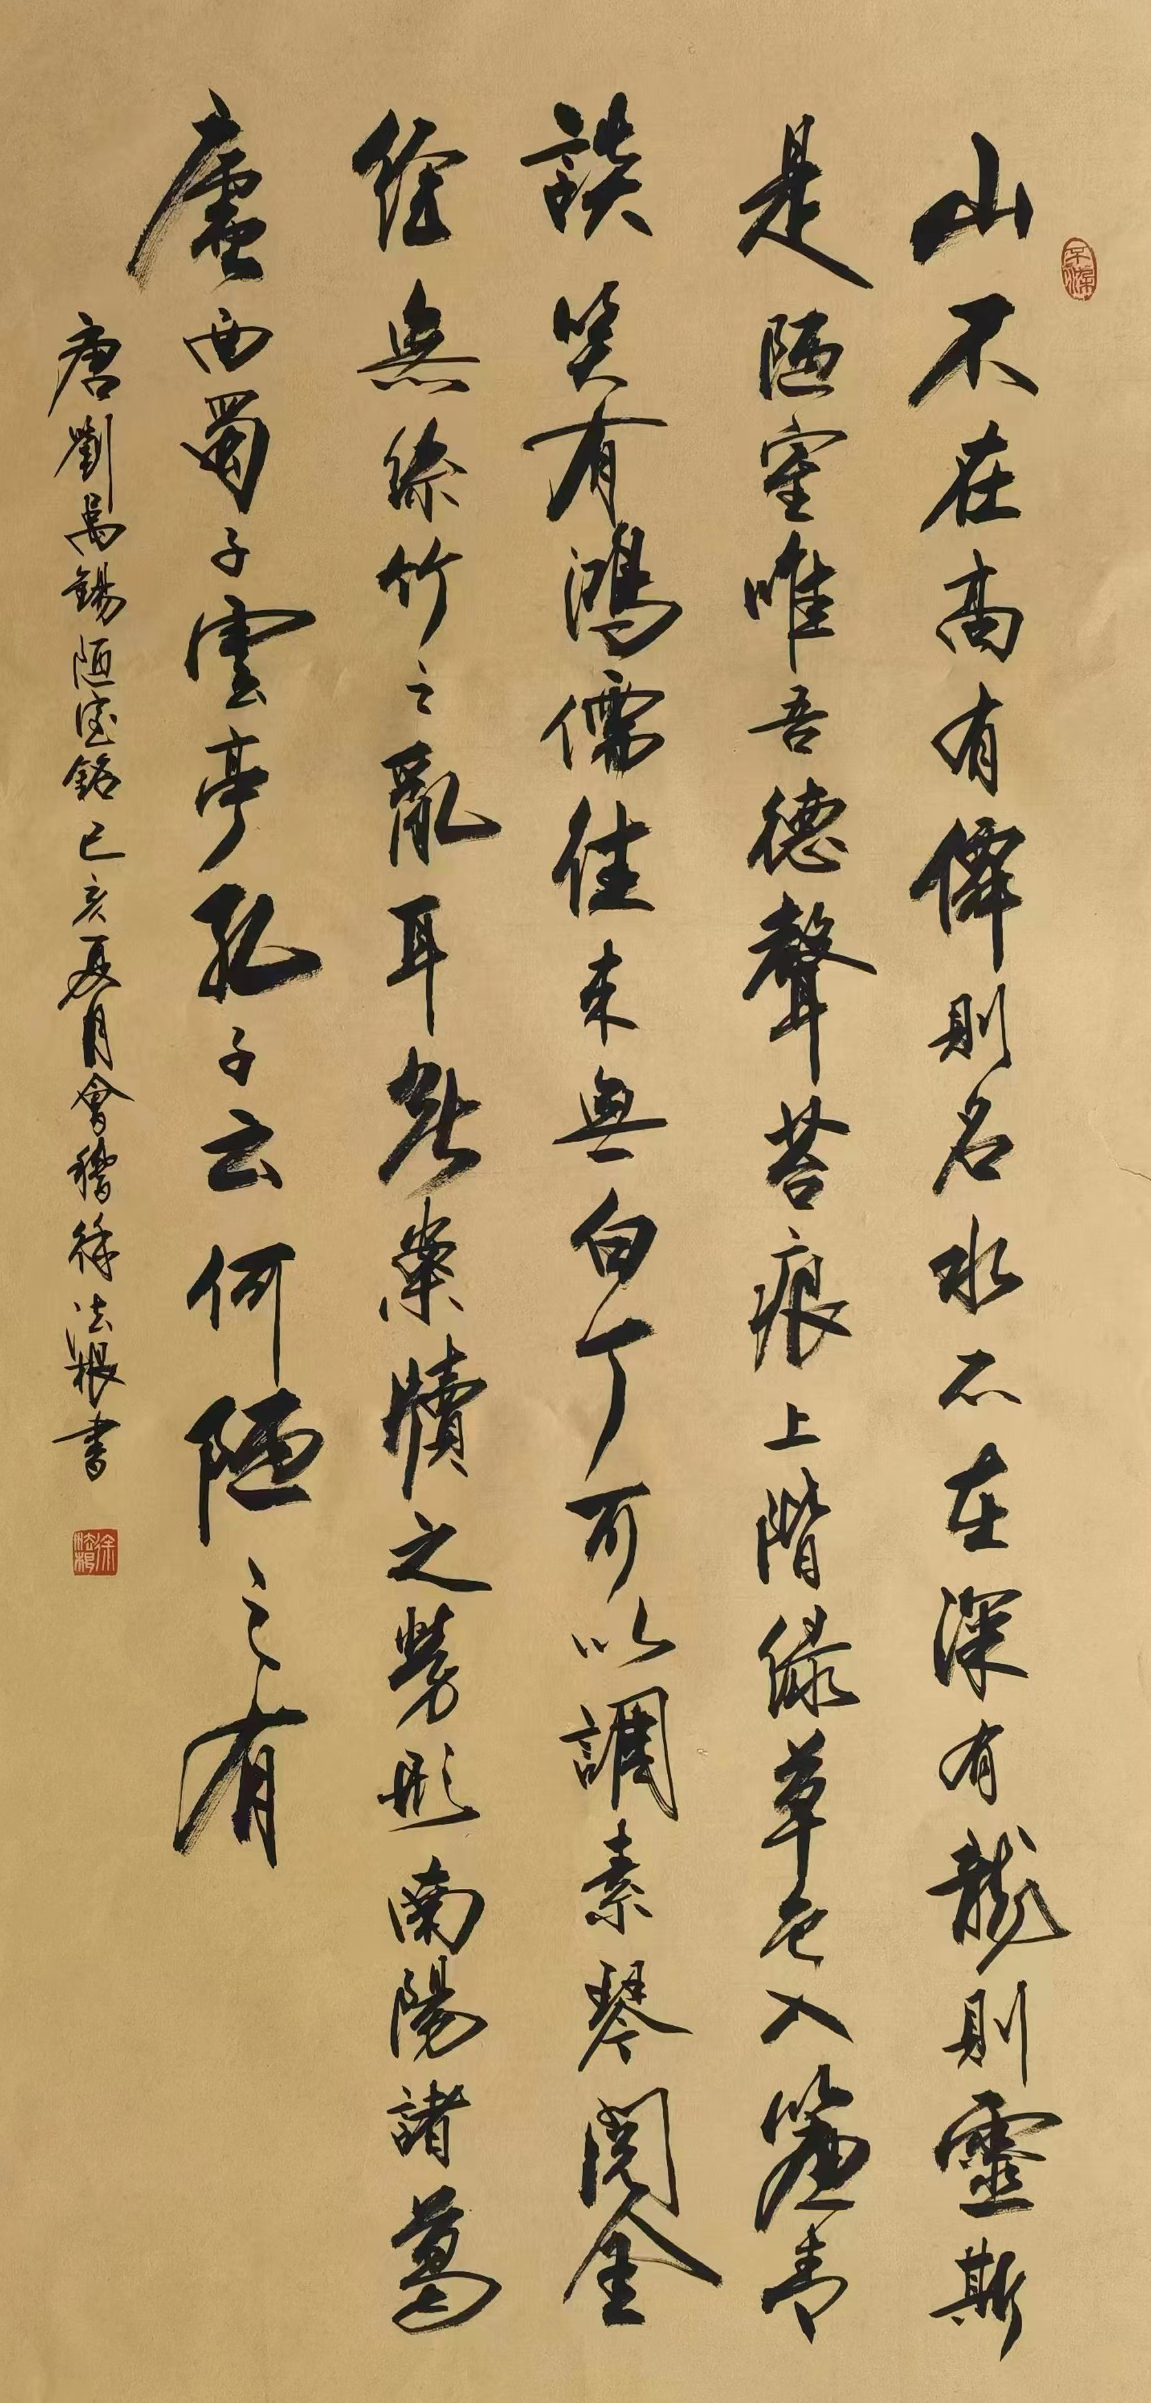 山不在高有僊則名水不在深有龍則靈斯
是陋室唯吾德聲苔痕上階緑草色入簾青
談笑有鴻儒往來無白丁可以調素琴閱金
經無絲竹之亂耳無案牘之勞形南陽諸葛
廬西蜀子雲亭孔子云何陋之有
唐劉禹錫陋室銘己亥夏月會稽徐法根書
徐法根